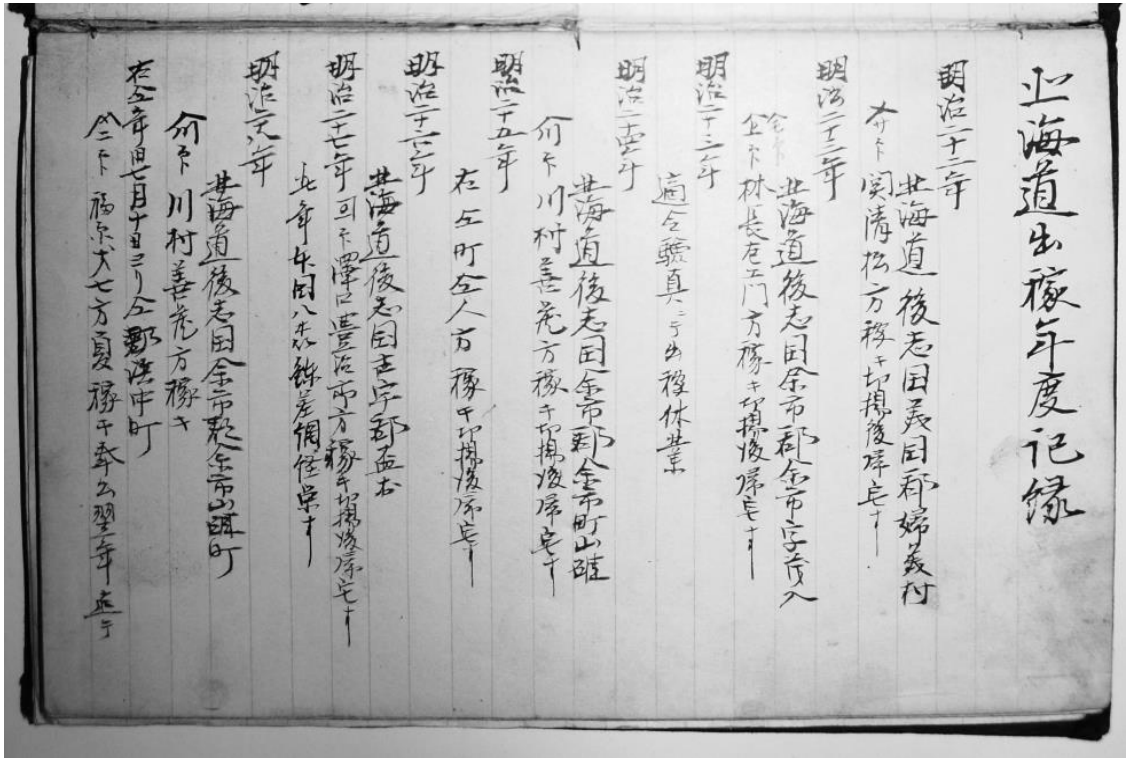 北海道出稼年度記録
明治二十二年
北海道後志国美国郡婦美村
関清松方稼キ切揚後帰宅ス
明治二十三年
北海道後志国余市郡余市字茂入
林長左エ門方稼キ切揚後帰宅ス
明治二十三年
適令験真ニテ出稼休業
明治二十四年
北海道後志国余市郡余市町山碓
川村善蔵方稼キ切揚後帰宅ス
明治二十五年
右仝町仝人方稼キ切揚後帰宅ス
明治二十六年
北海道後志国古宇郡盃村
明治二十七年 澤口豊治郎方稼キ切揚後帰宅ス
此年
明治二十八年
北海道後志国余市郡余市山碓町
川村善蔵方稼キ
右仝年旧七月十日ヨリ仝郡浜中町
福原大七方夏稼キ奉公翌年